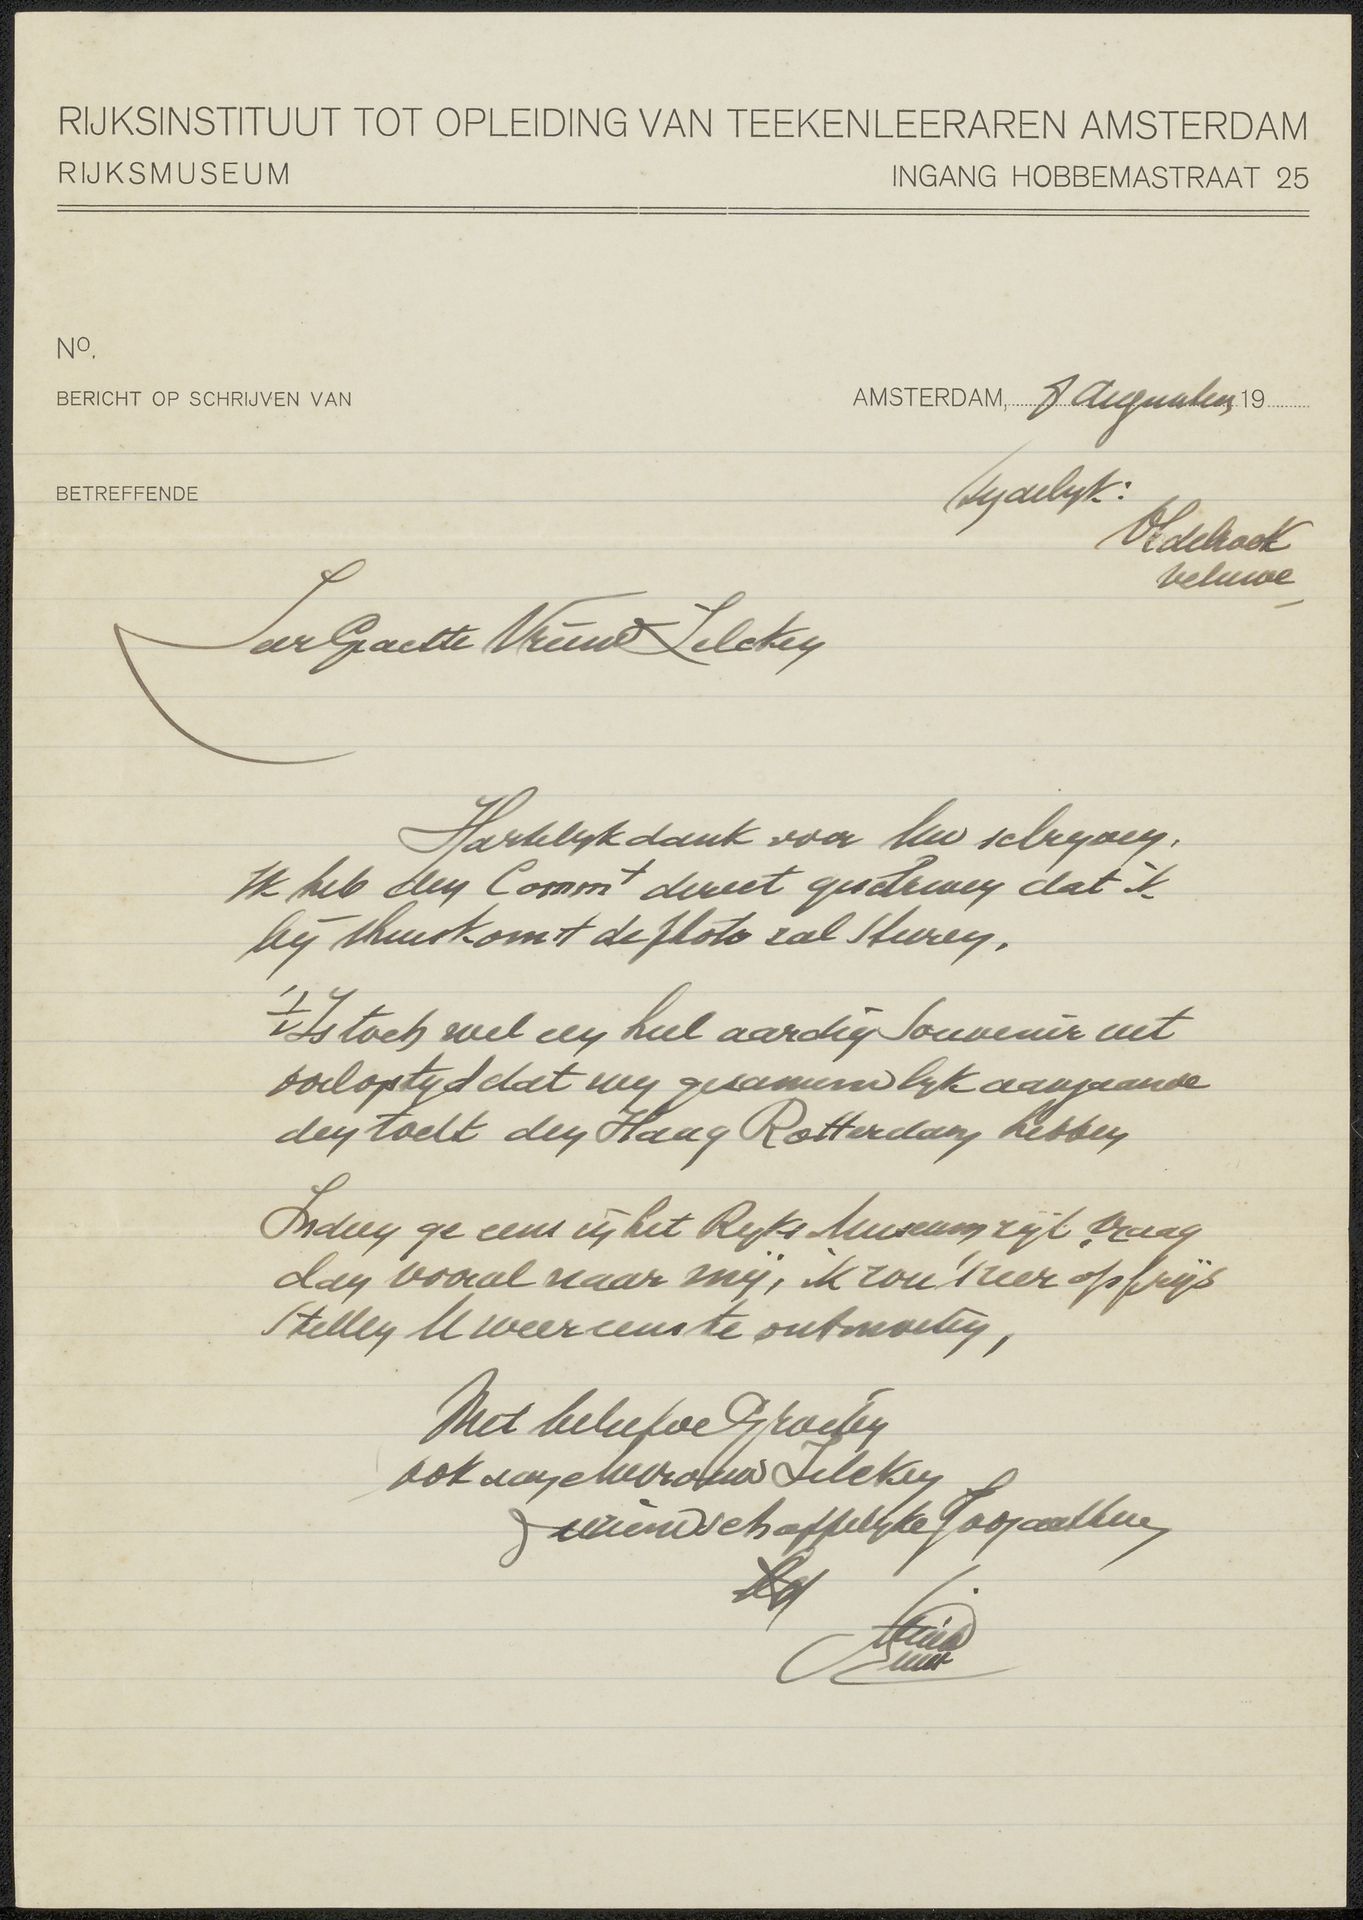 RIJKSINSTITUUT TOT OPLEIDING VAN TEEKENLEERAREN AMSTERDAM
RIJKSMUSEUM INGANG HOBBEMASTRAAT 25
No.
BERICHT OP SCHRIJVEN VAN AMSTERDAM, 8 Augustus 19
BETREFFENDE
tijdelijk:
Oldebroek
Veluwe
Zeer Geachte Vriend Zilcken
Hartelijk dank voor Uw schrijven.
Ik heb den Commt direct geschreven dat ik
bij thuiskomst de photo zal sturen.
't Is toch wel een heel aardig Souvenir uit
oorlogstijd dat wij gezamenlijk aangaande
den tocht den Haag Rotterdam hebben
Indien ge eens in het Rijks Museum zijt vraag
dan vooral naar mij, ik zou 't zeer op prijs
stellen U weer eens te ontmoeten,
Met beleefde Groeten
ook aan Mevrouw Zilcken
vriendschappelijke Hoogachting